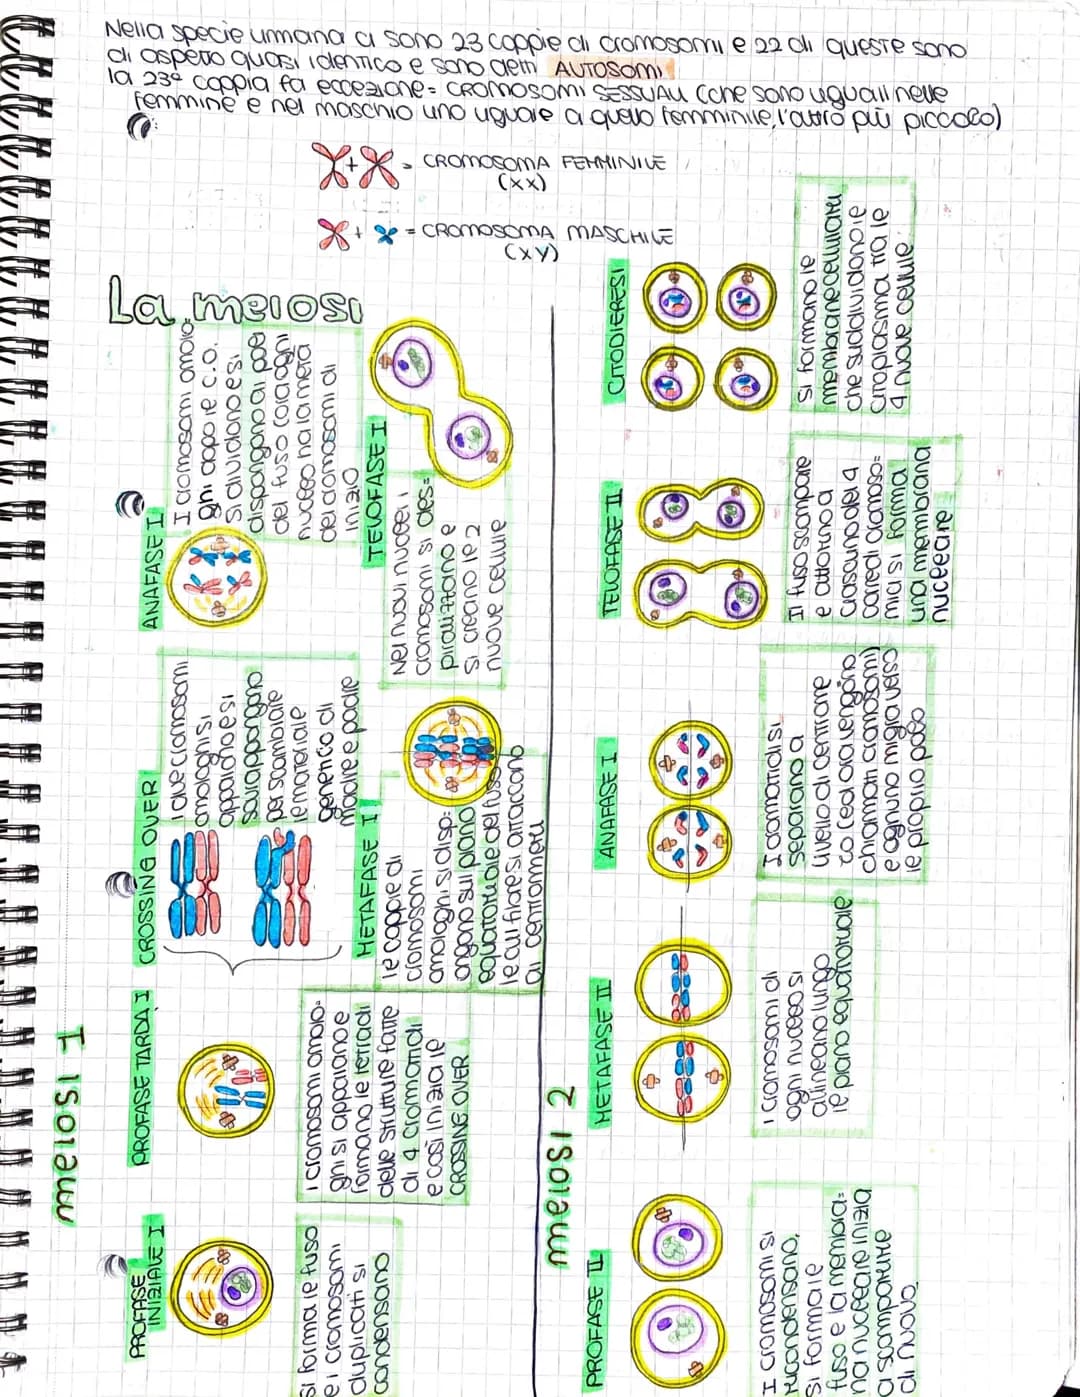 Nella specie umana ci sono 23 coppie di cromosomi e 22 di queste sono
di aspetto quasi identico e sono detti AUTOSOMI
la 23ª coppia fa eccezione = CROMOSOMI SESSUALI (che sono uguali nelle
femmine e nel maschio uno uguale a quello femminile, l'altro più piccolo)
+ = CROMOSOMA FEMMINILE
(XX)
+ = CROMOSOMA MASCHILE
(XY)
La meiosi
meiosi 1
PROFASE
INIZIALE I
Si forma le fuso
e i cromosomi
duplicati si
condensano
PROFASE TARDA I
I cromosomi omolo-
ghi si appaiano e
formano le tetradi
delle strutture fatte
di 4 cromatidi
e così inizia le
CROSSING OVER
CROSSING OVER
I due cromosomi
omologhi si
appaiano e si
sovrappongono
per scambiare
le materiale
genetico di
madre e padre
METAFASE I
le coppie di
cromosomi
omologhi si disp:
ongono sul piano
equatoriale del fuso
le cui fibre si attaccano
ai centromeri
ANAFASE I
I cromosomi omolo-
ghi dopo le C.O.
Si dividono e si
dispongono ai poli
del fuso (ora ogni
nucleo ha la metà
dei cromosomi di
inizio
TELOFASE I
Nei novi nucleei i
cromosomi si des=
piralizzano e
si creano le 2
nuove cellule
meiosi 2
PROFASE II
I cromosomi si
ricondensano,
si forma le
fuso e la membra-
na nucleare inizia
a scomparire
di nuovo
METAFASE II
I cromosomi di
ogni nucleo si
allineano lungo
le piano equatoriale
ANAFASE I
I cromatidi si
separano a
livello di centrome
ro (ed ora vengono
chiamati cromosomi)
e ognuno migra verso
le proprio polo
TELOFASE II
Il fuso scompare
e attorno a
ciascuno dei 4
corredi cromoso=
mici si forma
una membrana
nucleare
CITODIERESI
Si formano le
membrane cellulari
che suddividono le
citoplasma tra le
4 nuove cellule